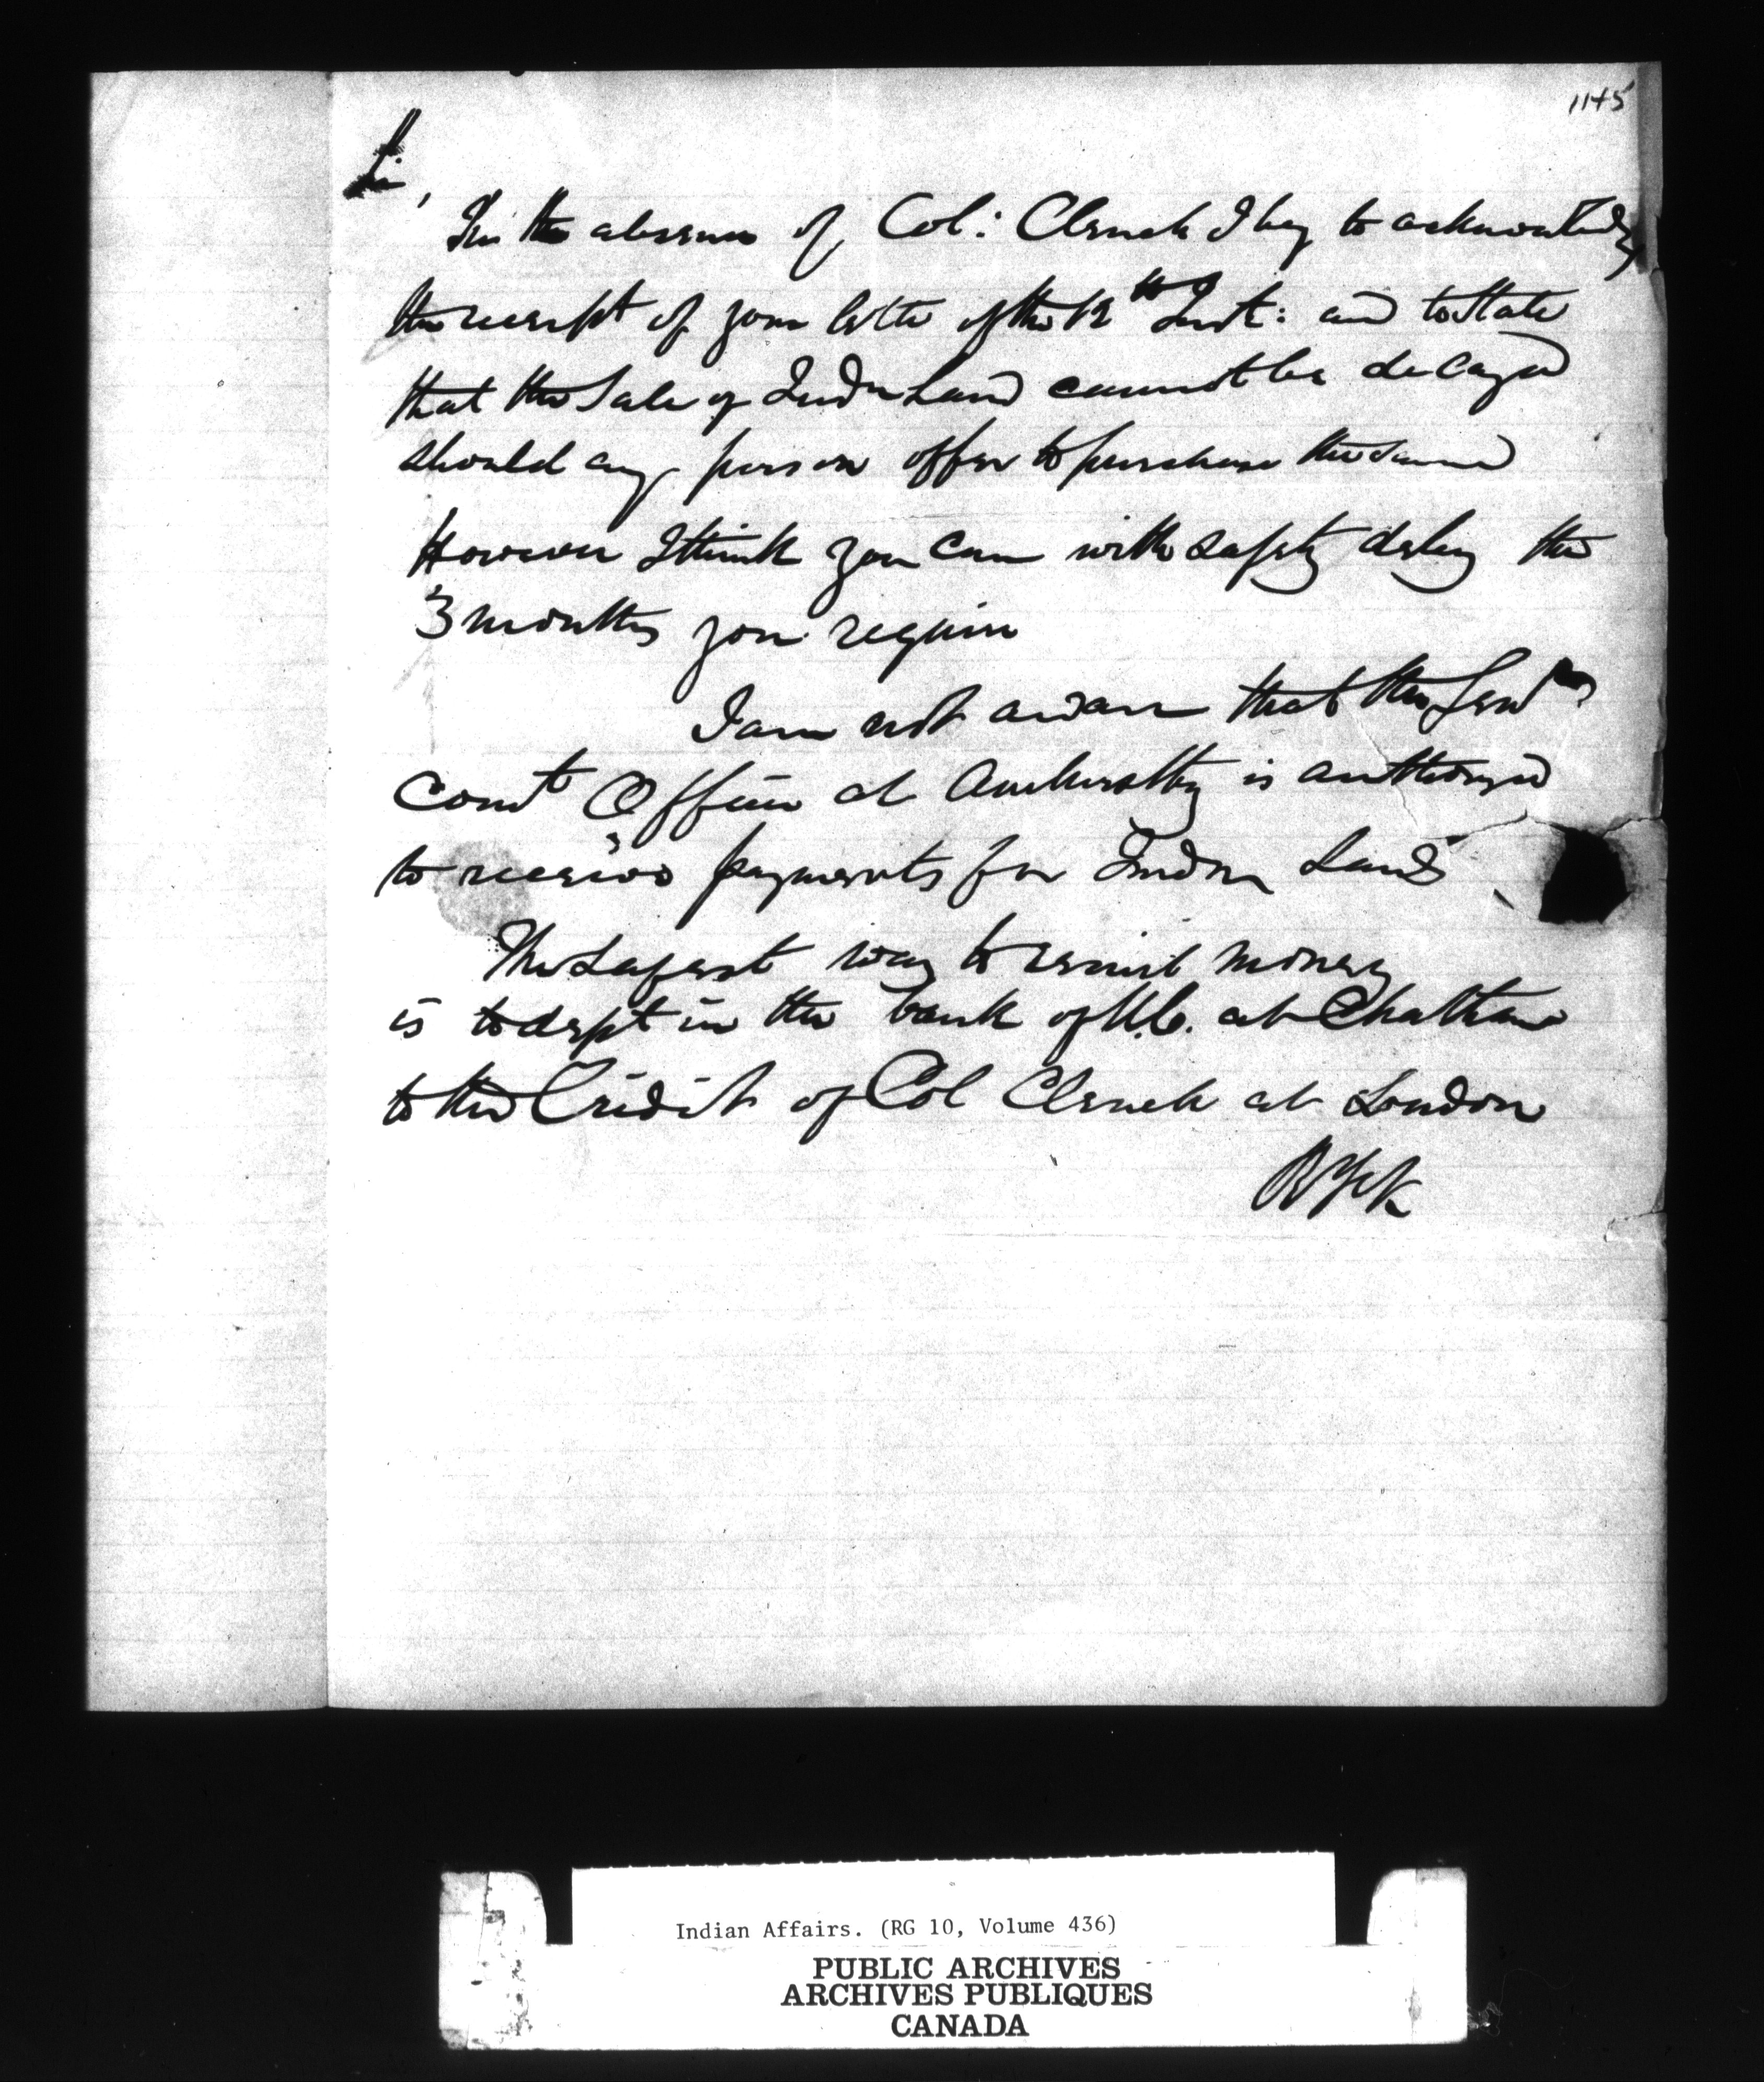 1145
Sir,
In the absence of Col: Clench I beg to acknowledge
the receipt of your letter of the 12th Inst: and to State
that the Sale of Indn Land cannot be delayed
should any person offer to purchase the same
However I think you can with safety delay the
3 months you require
I am not aware that the
Comt Officer at Amherstbg is authorized
to receive payments for Indn Lands
The Safest way to remit money
is to dept in the bank of U.C. at Chatham
to the Credit of Col Clench at London
Indian Affairs. (RG 10, Volume 436)
PUBLIC ARCHIVES
ARCHIVES PUBLIQUES
CANADA